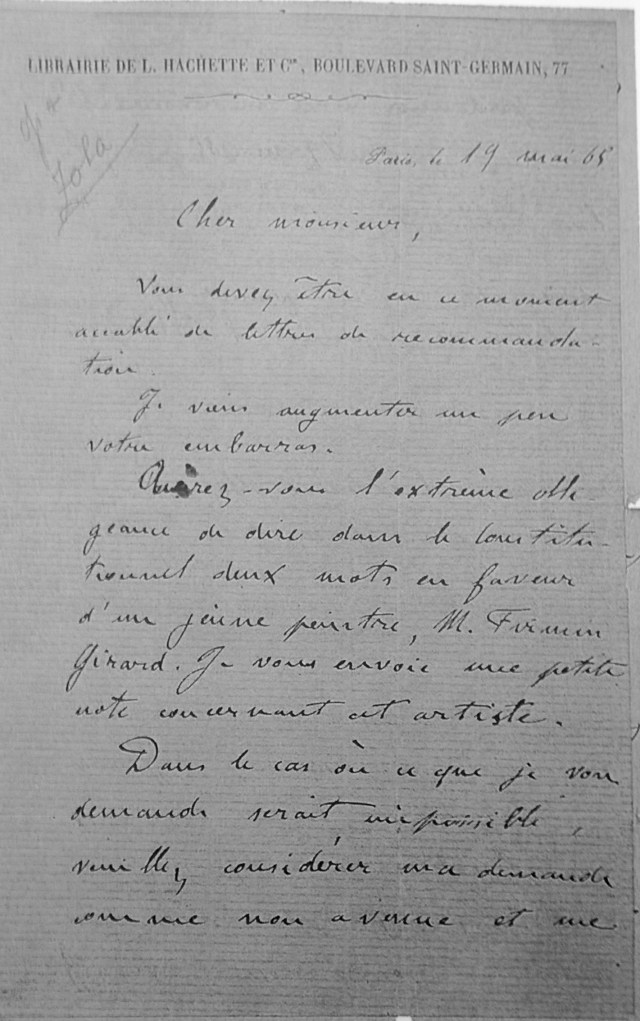 LIBRAIRIE DE L. HACHETTE ET Cie, BOULEVARD SAINT-GERMAIN, 77
Zola
Paris, le 19 mai 65
Cher monsieur,
Vous devez être en ce moment
accablé de lettres de recommanda-
tion.
Je viens augmenter un peu
votre embarras.
Aurez-vous l'extrême obli-
geance de dire dans le Constitu-
tionnel deux mots en faveur
d'un jeune peintre, M. Firmin
Girard. Je vous envoie une petite
note concernant cet artiste.
Dans le cas où ce que je vous
demande serait impossible,
veuillez considérer ma demande
comme non avenue et me